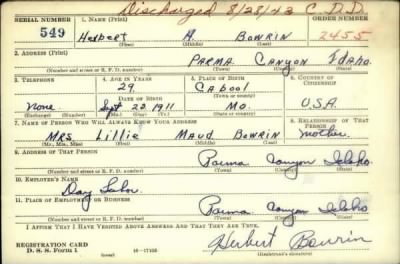 Discharged 8/28/43 C.D.D.
SERIAL NUMBER 1. NAME (Print) ORDER NUMBER
549 Herbert A. Bowrin 2455
(First) (Middle) (Last)
2. ADDRESS (Print)
Parma Canyon Idaho
(Number and street or R. F. D. number) (Town) (County) (State)
3. TELEPHONE 4. AGE IN YEARS 5. PLACE OF BIRTH 6. COUNTRY OF CITIZENSHIP
29 Cabool
DATE OF BIRTH (Town or county)
None Sept 22 1911 Mo. U.S.A.
(Exchange) (Number) (Mo.) (Day) (Yr.) (State or country)
7. NAME OF PERSON WHO WILL ALWAYS KNOW YOUR ADDRESS 8. RELATIONSHIP OF THAT PERSON
Mrs Lillie Maud Bowrin Mother
(Mr., Mrs., Miss) (First) (Middle) (Last)
9. ADDRESS OF THAT PERSON
Parma Canyon Idaho
(Number and street or R. F. D. number) (Town) (County) (State)
10. EMPLOYER'S NAME
Day Labor
11. PLACE OF EMPLOYMENT OR BUSINESS
Parma Canyon Idaho
(Number and street or R. F. D. number) (Town) (County) (State)
I AFFIRM THAT I HAVE VERIFIED ABOVE ANSWERS AND THAT THEY ARE TRUE.
REGISTRATION CARD
D. S. S. Form 1 16-17105 Herbert Bowrin